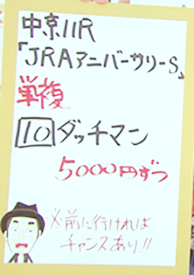 中京11R
「JRAアニバーサリーS」
単複
10 ダッチマン
5000円ずつ
※前に行ければ
チャンスあり!!